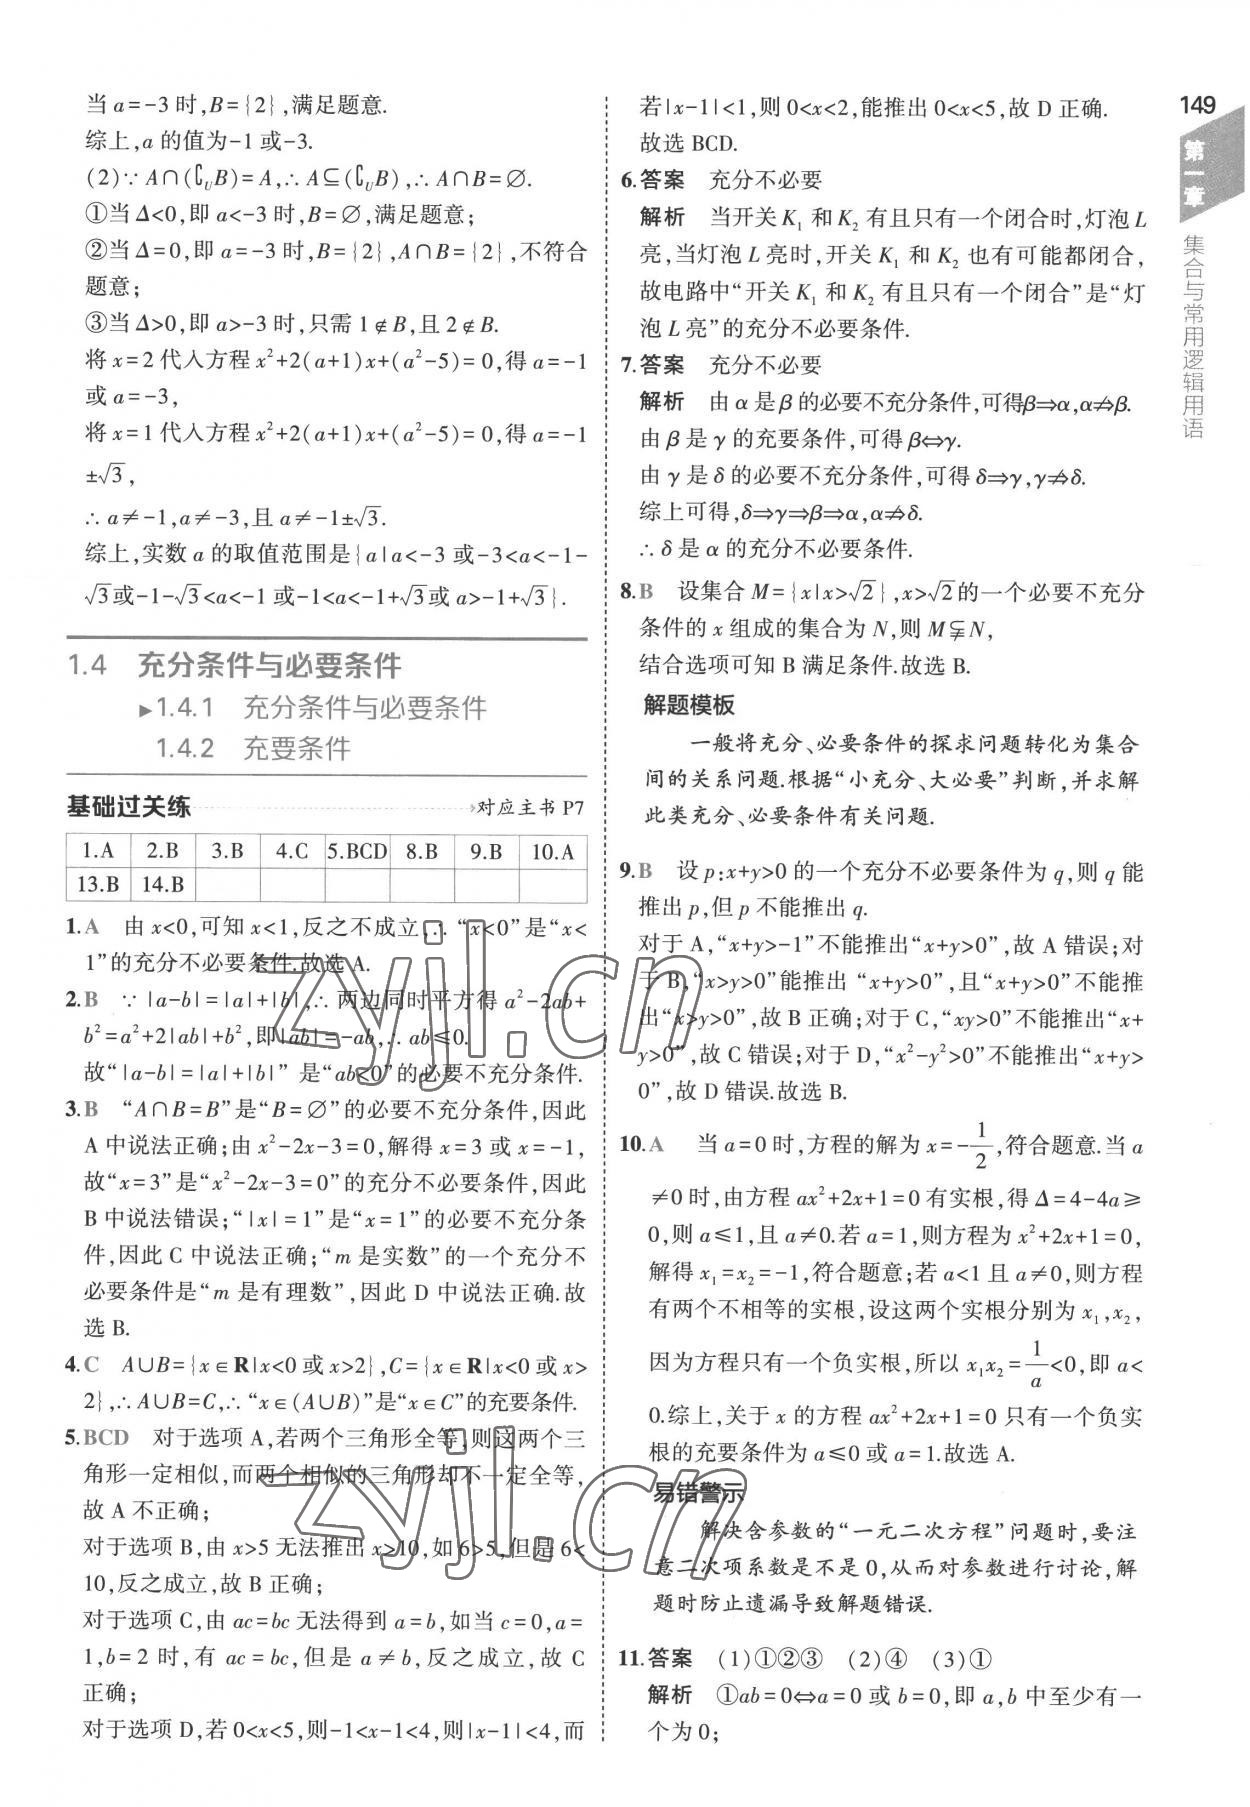 当 a=-3 时,B={2},满足题意.
综上,a 的值为-1 或-3.
(2)∵ A∩(∁UB)=A,∴ A⊆(∁UB),∴ A∩B=∅.
①当 Δ<0,即 a<-3 时,B=∅,满足题意;
②当 Δ=0,即 a=-3 时,B={2},A∩B={2},不符合
题意;
③当 Δ>0,即 a>-3 时,只需 1∉B,且 2∉B.
将 x=2 代入方程 x²+2(a+1)x+(a²-5)=0,得 a=-1
或 a=-3,
将 x=1 代入方程 x²+2(a+1)x+(a²-5)=0,得 a=-1
±√3,
∴ a≠-1,a≠-3,且 a≠-1±√3.
综上,实数 a 的取值范围是{a|a<-3 或-3<a<-1-
√3或-1-√3<a<-1 或-1<a<-1+√3或 a>-1+√3}.
1.4 充分条件与必要条件
▶1.4.1 充分条件与必要条件
1.4.2 充要条件
基础过关练 对应主书 P7
1.A 2.B 3.B 4.C 5.BCD 8.B 9.B 10.A
13.B 14.B
1.A 由 x<0,可知 x<1,反之不成立,∴ “x<0”是“x<
1”的充分不必要条件.故选 A.
2.B ∵ |a-b|=|a|+|b|,∴ 两边同时平方得 a²-2ab+
b²=a²+2|ab|+b²,即|ab|=-ab,∴ ab≤0.
故“|a-b|=|a|+|b|” 是“ab<0”的必要不充分条件.
3.B “A∩B=B”是“B=∅”的必要不充分条件,因此
A 中说法正确;由 x²-2x-3=0,解得 x=3 或 x=-1,
故“x=3”是“x²-2x-3=0”的充分不必要条件,因此
B 中说法错误;“|x|=1”是“x=1”的必要不充分条
件,因此 C 中说法正确;“m 是实数”的一个充分不
必要条件是“m 是有理数”,因此 D 中说法正确.故
选 B.
4.C A∪B={x∈R|x<0 或 x>2},C={x∈R|x<0 或 x>
2},∴ A∪B=C,∴ “x∈(A∪B)”是“x∈C”的充要条件.
5.BCD 对于选项 A,若两个三角形全等,则这两个三
角形一定相似,而两个相似的三角形却不一定全等,
故 A 不正确;
对于选项 B,由 x>5 无法推出 x>10,如 6>5,但是 6<
10,反之成立,故 B 正确;
对于选项 C,由 ac=bc 无法得到 a=b,如当 c=0,a=
1,b=2 时,有 ac=bc,但是 a≠b,反之成立,故 C
正确;
对于选项 D,若 0<x<5,则-1<x-1<4,则|x-1|<4,而
若|x-1|<1,则 0<x<2,能推出 0<x<5,故 D 正确.
故选 BCD.
6.答案 充分不必要
解析 当开关 K₁ 和 K₂ 有且只有一个闭合时,灯泡 L
亮,当灯泡 L 亮时,开关 K₁ 和 K₂ 也有可能都闭合,
故电路中“开关 K₁ 和 K₂ 有且只有一个闭合”是“灯
泡 L 亮”的充分不必要条件.
7.答案 充分不必要
解析 由 α 是 β 的必要不充分条件,可得β⇒α,α⇏β.
由 β 是 γ 的充要条件,可得 β⇔γ.
由 γ 是 δ 的必要不充分条件,可得 δ⇒γ,γ⇏δ.
综上可得,δ⇒γ⇒β⇒α,α⇏δ.
∴ δ 是 α 的充分不必要条件.
8.B 设集合 M={x|x>√2},x>√2的一个必要不充分
条件的 x 组成的集合为 N,则 M⫋N,
结合选项可知 B 满足条件.故选 B.
解题模板
一般将充分、必要条件的探求问题转化为集合
间的关系问题.根据“小充分、大必要”判断,并求解
此类充分、必要条件有关问题.
9.B 设 p:x+y>0 的一个充分不必要条件为 q,则 q 能
推出 p,但 p 不能推出 q.
对于 A,“x+y>-1”不能推出“x+y>0”,故 A 错误;对
于 B,“x>y>0”能推出 “x+y>0”,且“x+y>0”不能推
出“x>y>0”,故 B 正确;对于 C,“xy>0”不能推出“x+
y>0”,故 C 错误;对于 D,“x²-y²>0”不能推出“x+y>
0”,故 D 错误.故选 B.
10.A 当 a=0 时,方程的解为 x=-1/2,符合题意.当 a
≠0 时,由方程 ax²+2x+1=0 有实根,得 Δ=4-4a≥
0,则 a≤1,且 a≠0.若 a=1,则方程为 x²+2x+1=0,
解得 x₁=x₂=-1,符合题意;若 a<1 且 a≠0,则方程
有两个不相等的实根,设这两个实根分别为 x₁,x₂,
因为方程只有一个负实根,所以 x₁x₂=1/a<0,即 a<
0.综上,关于 x 的方程 ax²+2x+1=0 只有一个负实
根的充要条件为 a≤0 或 a=1.故选 A.
易错警示
解决含参数的“一元二次方程”问题时,要注
意二次项系数是不是 0,从而对参数进行讨论,解
题时防止遗漏导致解题错误.
11.答案 (1)①②③ (2)④ (3)①
解析 ①ab=0⇔a=0 或 b=0,即 a,b 中至少有一
个为 0;
149
第一章
集合与常用逻辑用语
zyjl.cn
zyjl.cn